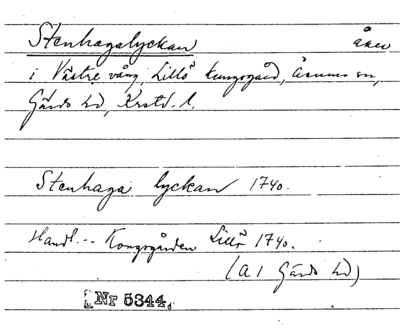 Stenhagalyckan åker
i Västre vång, Lillö kungsgård, Åsums sn,
Gärds hd, Krstd. l.
Stenhaga lyckan 1740.
Handl... Kongsgården Lillö 1740.
(A1 Gärds hd)
Nr 5344.